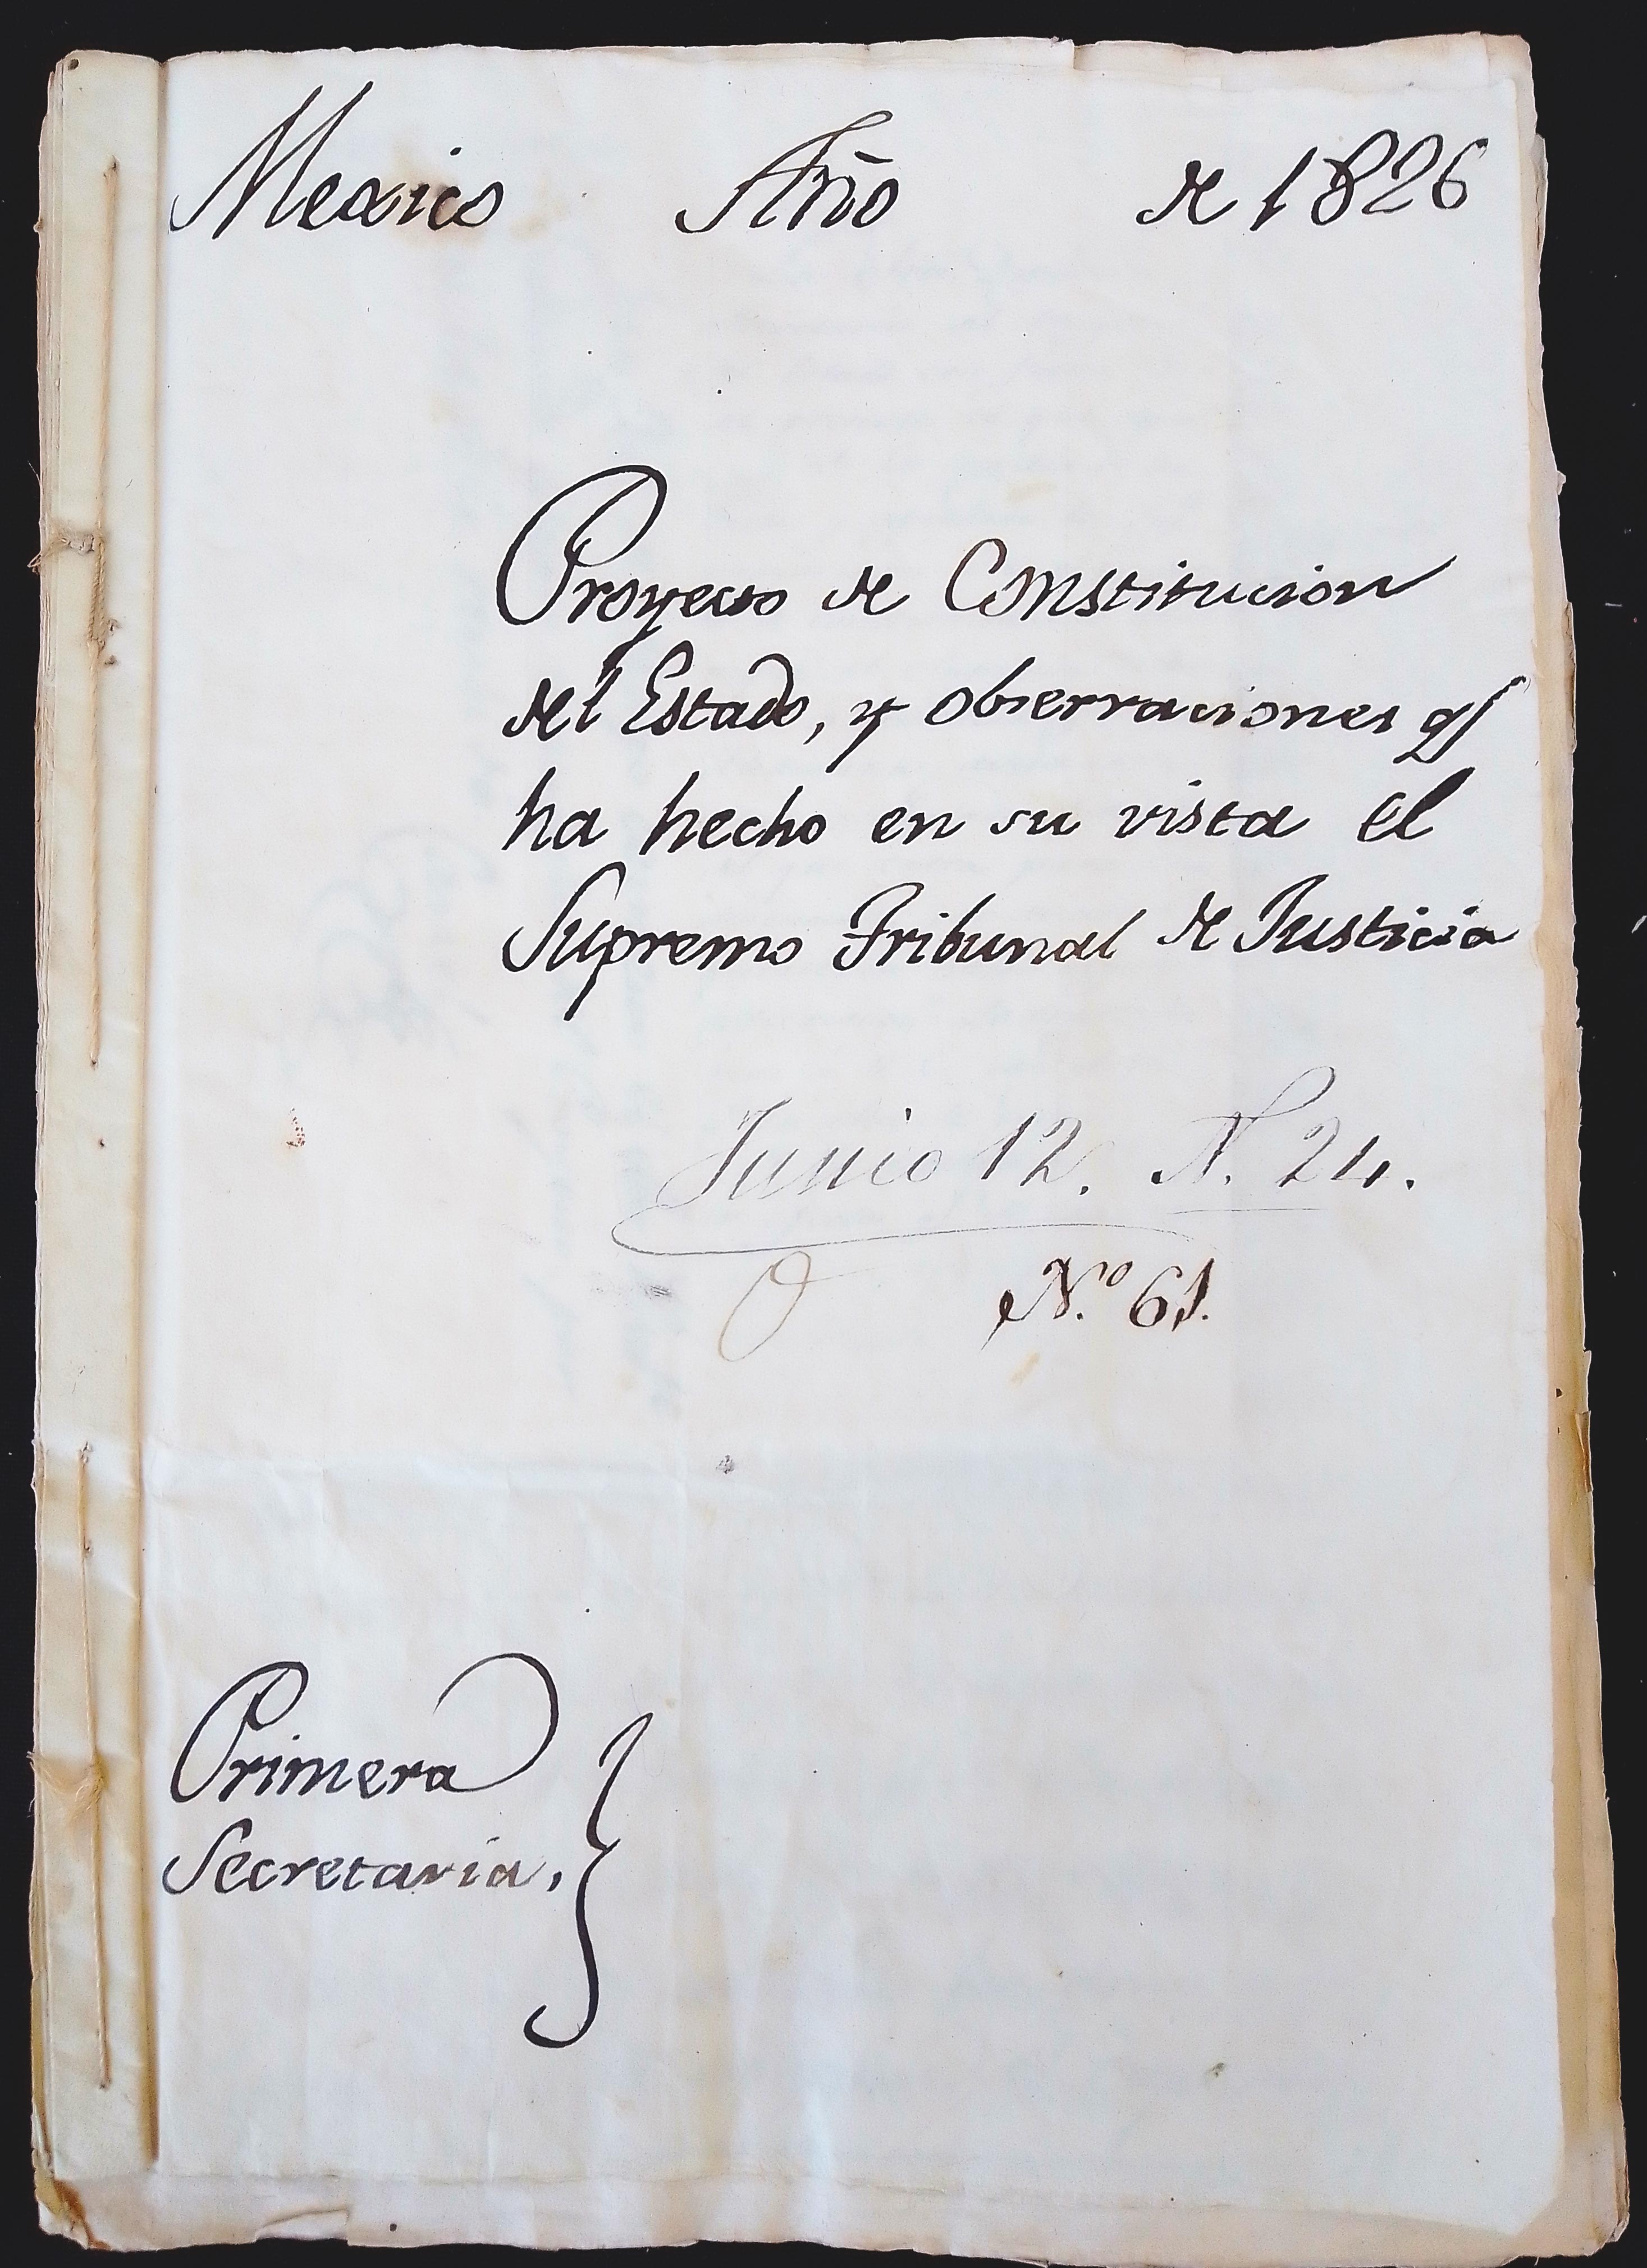 Mexico Año de 1826
Proyecto de Constitucion
del Estado, y observaciones q.e
ha hecho en su vista el
Supremo Tribunal de Justicia
Junio 12. N. 24.
N.º 61.
Primera
Secretaria.